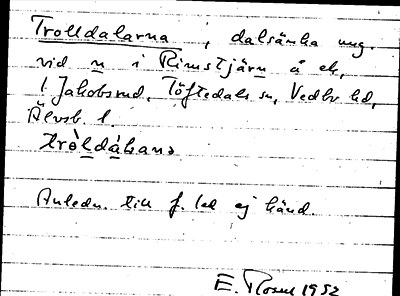 Trolldalarna, dalsänka ung.
vid n i Rimstjärn å ek,
1 Jakobsrud, Töftedals sn, Vedbo hd,
Älvsb. l.
tròldálana
Anledn. till f. led ej känd.
E. Rosen 1952